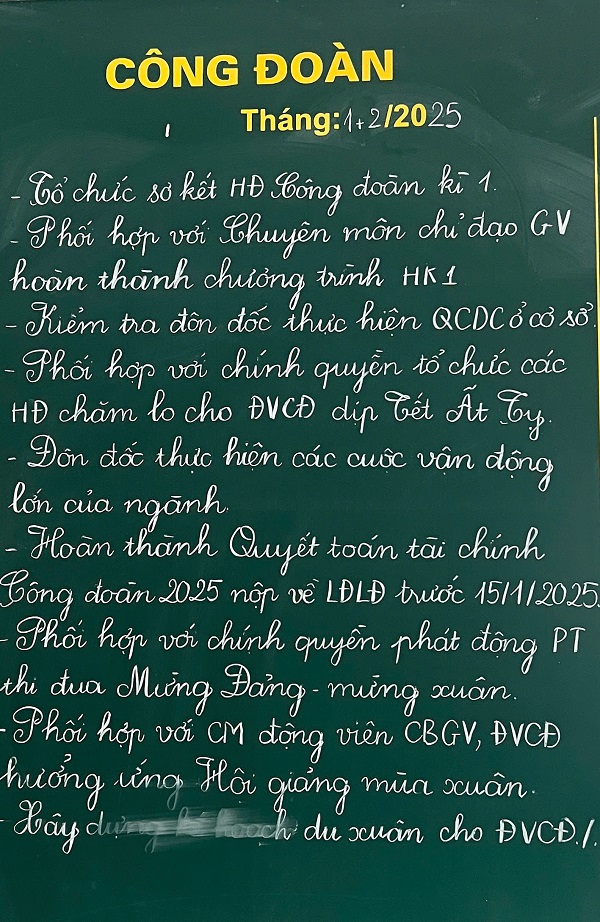 CÔNG ĐOÀN
Tháng: 1+2/2025
- Tổ chức sơ kết HĐ Công đoàn kì 1.
- Phối hợp với Chuyên môn chỉ đạo GV
hoàn thành chương trình HK1
- Kiểm tra đôn đốc thực hiện QCDC ở cơ sở.
- Phối hợp với chính quyền tổ chức các
HĐ chăm lo cho ĐVCĐ dịp Tết Ất Tỵ.
- Đôn đốc thực hiện các cuộc vận động
lớn của ngành.
- Hoàn thành Quyết toán tài chính
Công đoàn 2025 nộp về LĐLĐ trước 15/1/2025.
- Phối hợp với chính quyền phát động PT
thi đua Mừng Đảng - mừng xuân.
- Phối hợp với CM động viên CBGV, ĐVCĐ
hưởng ứng Hội giảng mùa xuân.
- Xây dựng kế hoạch du xuân cho ĐVCĐ./.